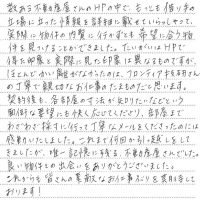 数ある不動産屋さんのHPの中で、もっとも借り手の
立場に立った情報を詳細に載せていらっしゃって、
実際に物件の内覧に行かずとも希望に合う物
件を見つけることができました。たいがいはHPで
得た印象と実際に見た印象は異なるものですが、
ほとんどかい離がなかったのは、フロンティア
の丁寧で親切なお仕事のたまものだと思います。
契約後も、各部屋の寸法が知りたいなどという
面倒な要望にも快く応じてくださり、部屋まで
わざわざ採寸に行って丁寧なメールをくださったのには
感動いたしました。これまで何回か引っ越しをして
きましたが、唯一記憶に残る、不動産屋さんでした。
良い物件との出会いをありがとうございました。
これからも皆さんの素敵なお仕事ぶりを応援して
おります!